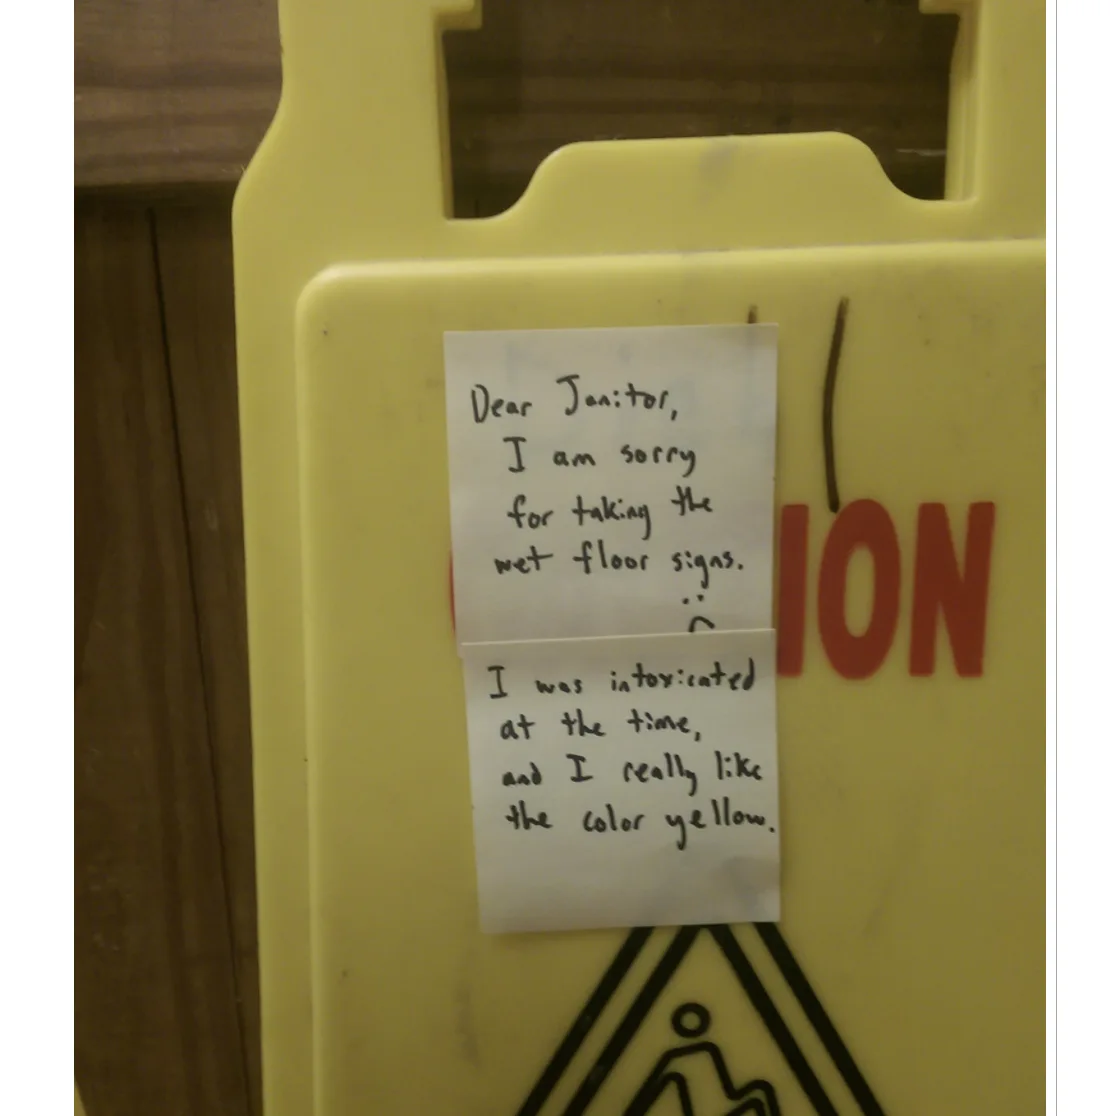 Dear Janitor,
I am sorry
for taking the
wet floor signs.
:(
I was intoxicated
at the time,
and I really like
the color yellow.
ION